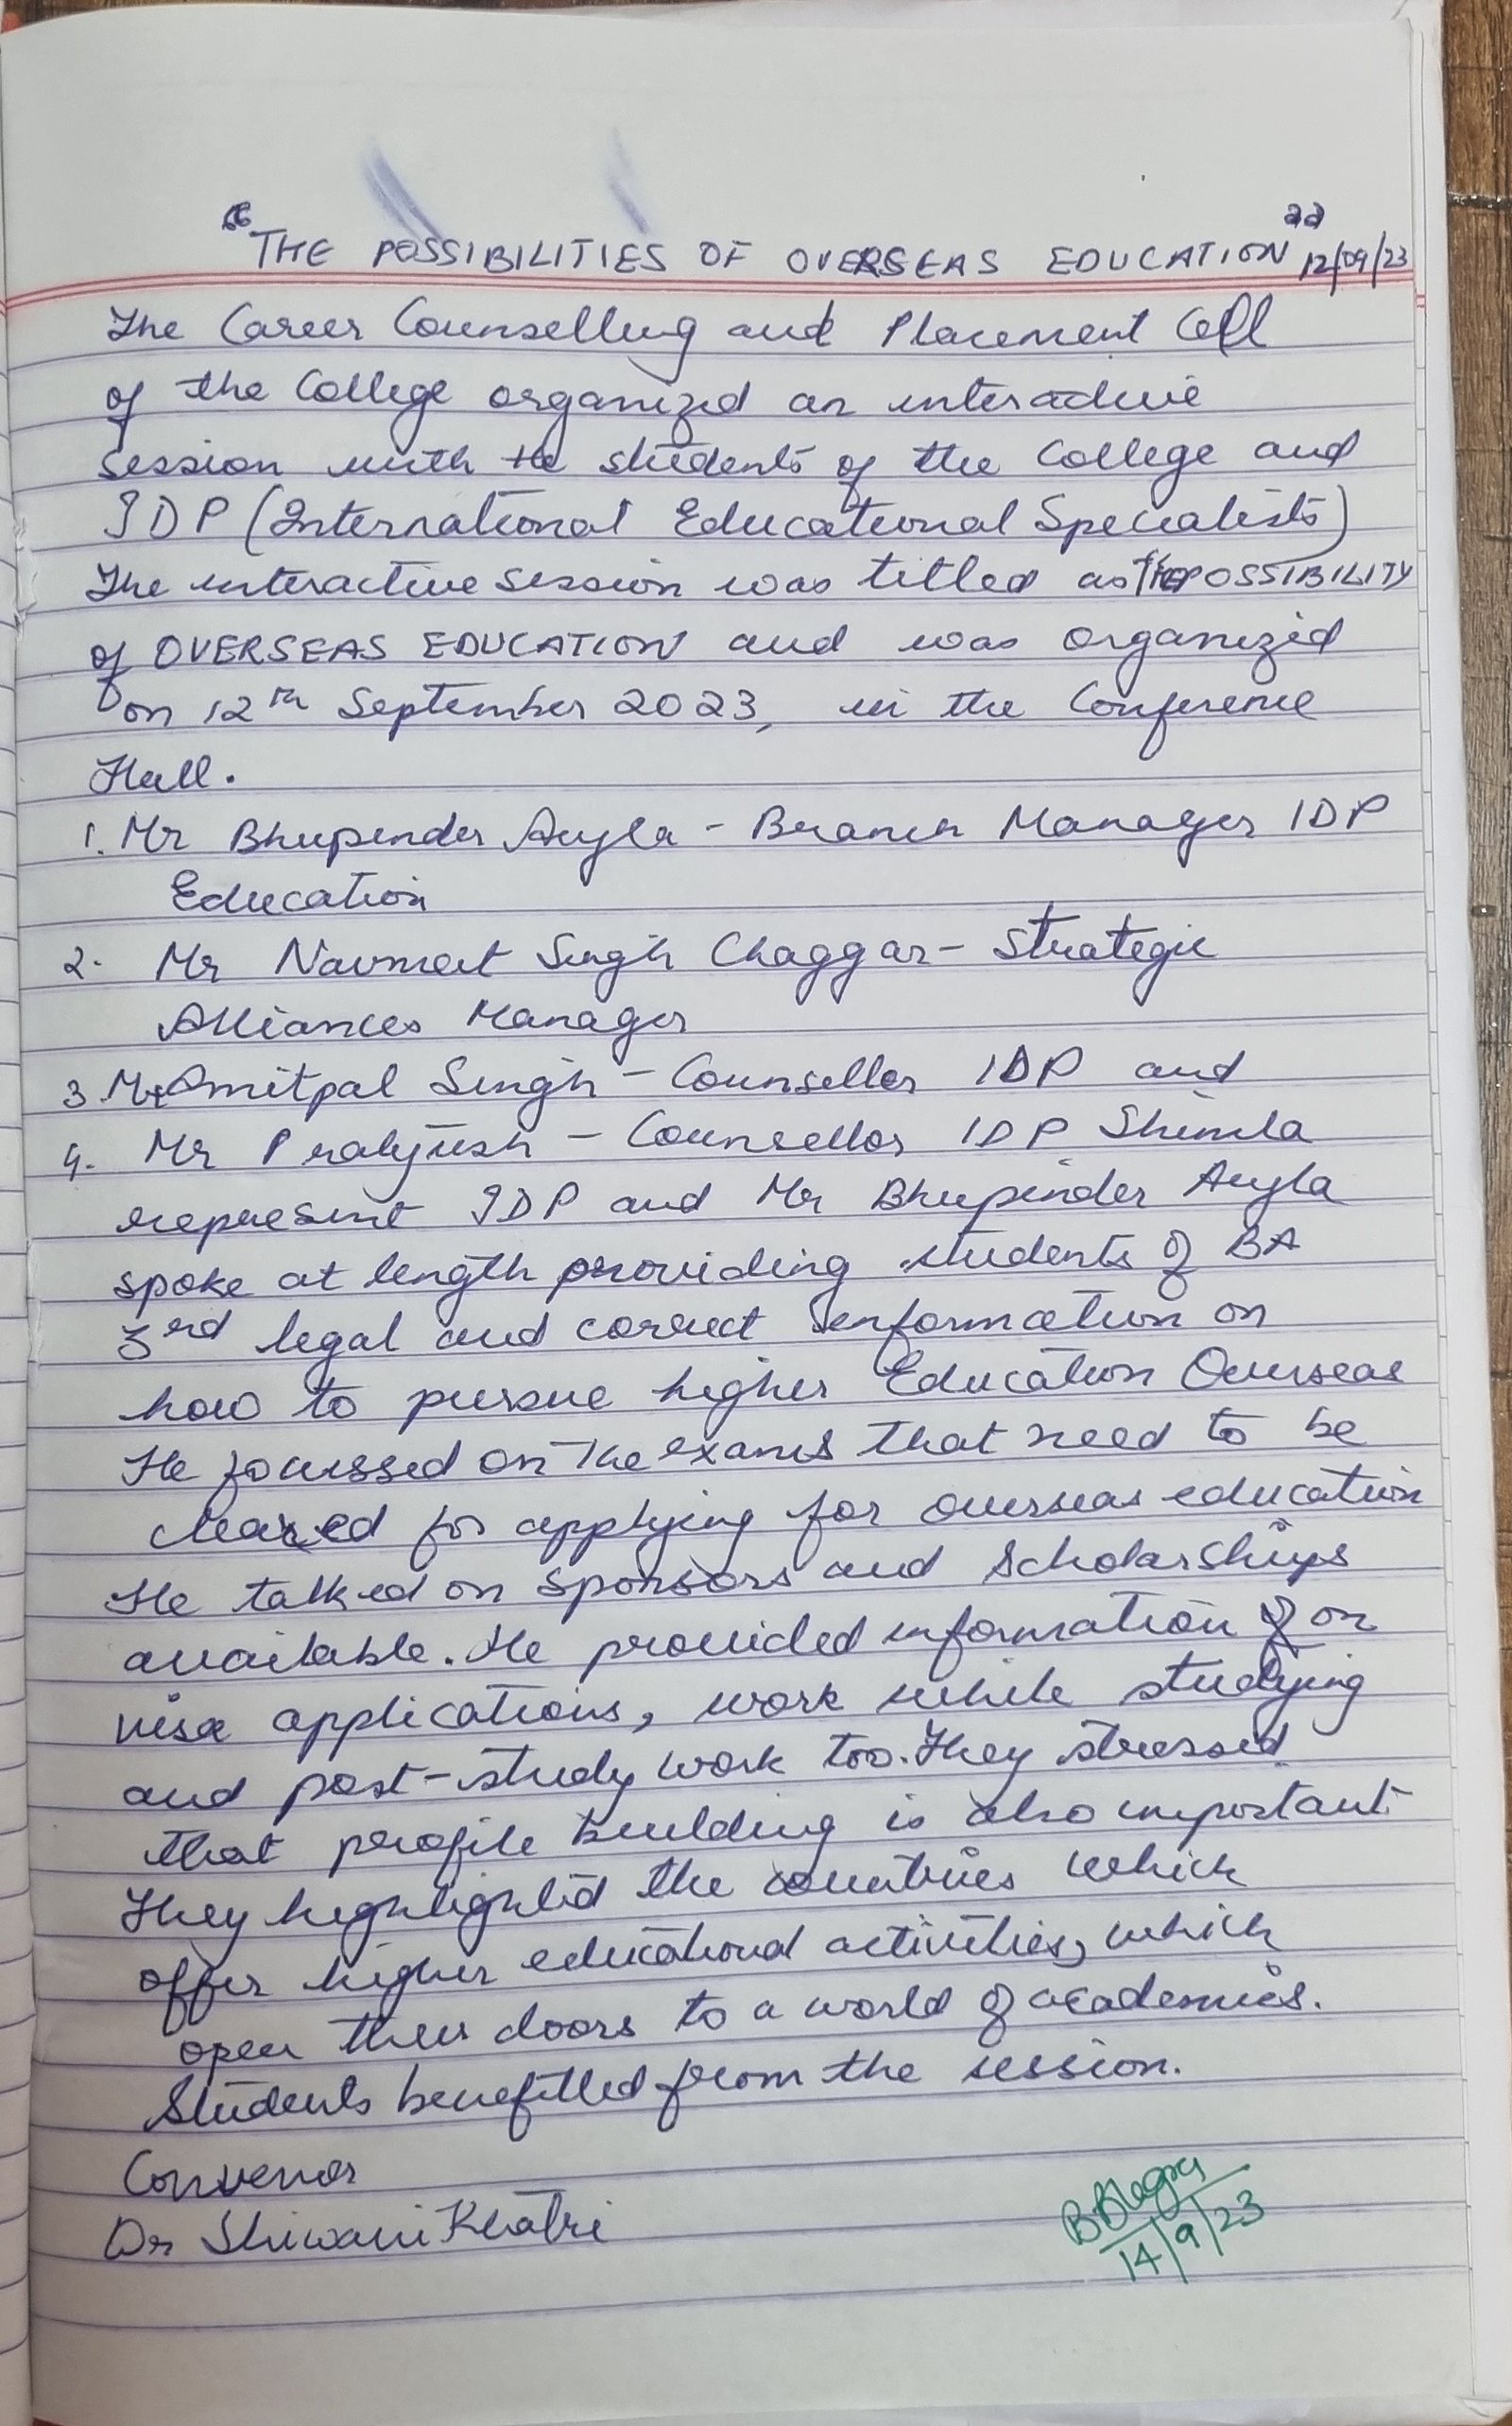 "THE POSSIBILITIES OF OVERSEAS EDUCATION" 12/09/23
The Career Counselling and Placement Cell
of the College organized an interactive
session with the students of the College and
IDP (International Educational Specialists)
The interactive session was titled as The POSSIBILITY
of OVERSEAS EDUCATION and was organized
on 12th September 2023, in the Conference
Hall.
1. Mr Bhupinder Augla - Branch Manager IDP
Education
2. Mr Navmeet Singh Chaggar - Strategic
Alliances Manager
3 Mr Amitpal Singh - Counsellor IDP and
4. Mr Pratyush - Counsellor IDP Shimla
represent IDP and Mr Bhupinder Augla
spoke at length providing students of BA
3rd legal and correct information on
how to pursue higher Education Overseas
He focussed on the exams that need to be
cleared for applying for overseas education
He talked on sponsors and Scholarships
available. He provided information on
visa applications, work while studying
and post-study work too. They stressed
that profile building is also important
They highlighted the countries which
offer higher educational activities, which
open their doors to a world of academics.
Students benefitted from the session.
Convenor
Dr Shiwani Khatri
14/9/23